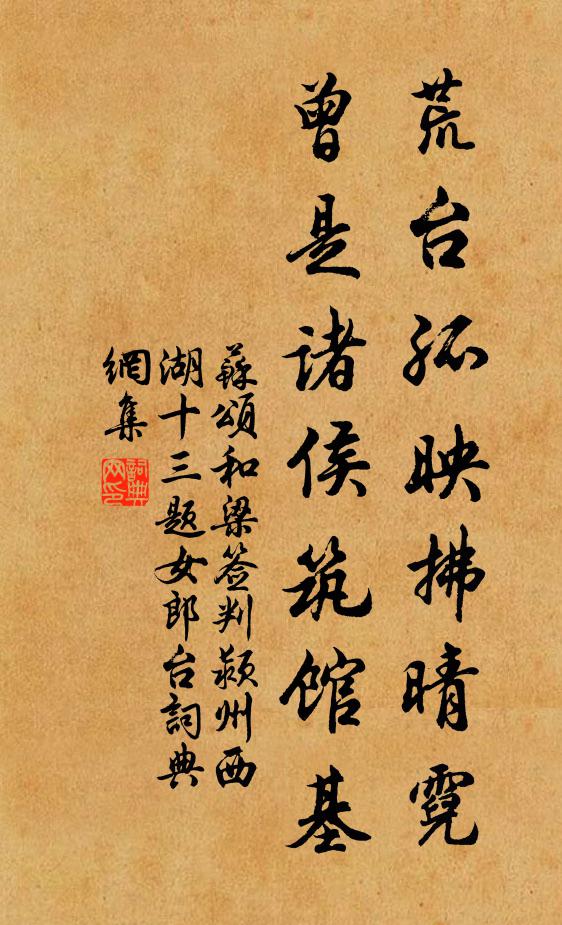 荒台孤映拂晴霓
曾是诸侯筑馆基
蘇頌和梁签判颍州西
湖十三题女郎台詞典
網集
詞典网印